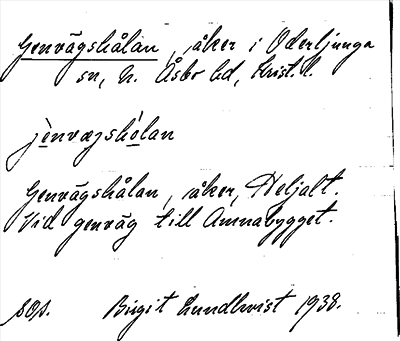 Genvägshålan, åker i Oderljunga
sn, N. Åsbo hd, Krist. l.
jènvægshòlan
Genvägshålan, åker, Heljalt.
Vid genväg till Amnabygget.
Birgit Lundkvist 1938.